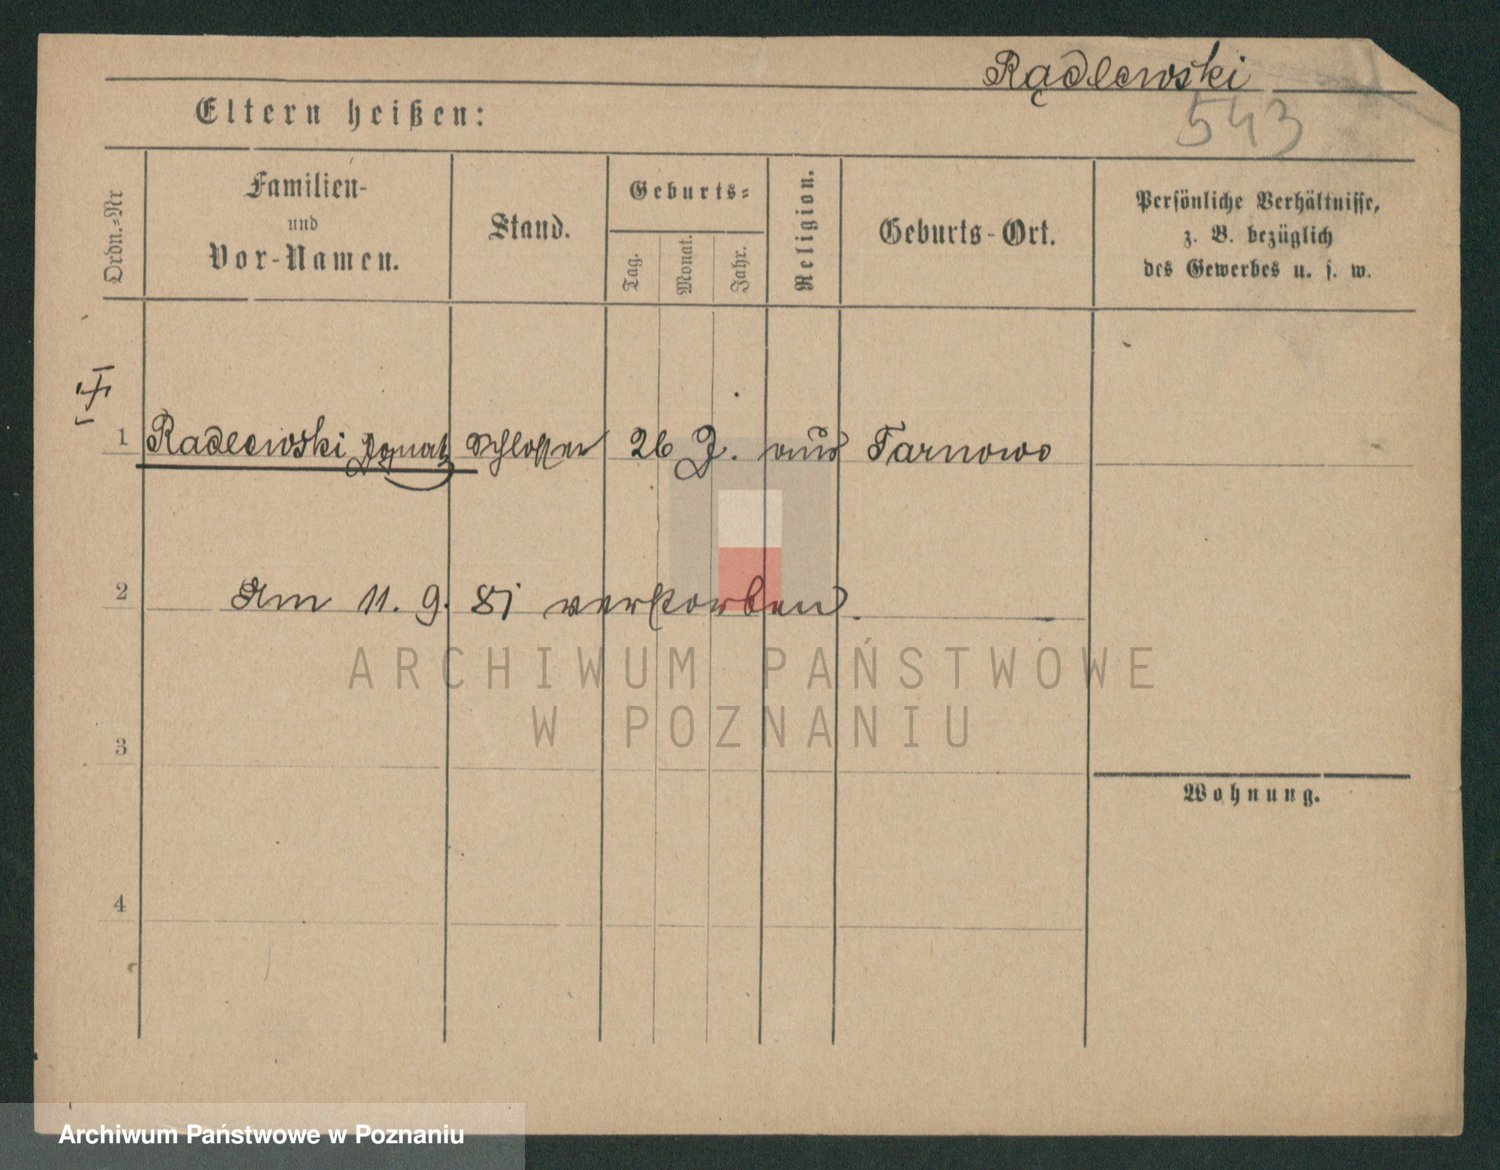 Rądlewski
543
Eltern heißen:
Ordn.=Nr
Familien-
und
Vor-Namen.
Stand.
Geburts=
Tag.
Monat.
Jahr.
Religion.
Geburts-Ort.
Persönliche Verhältnisse,
z. B. bezüglich
des Gewerbes u. s. w.
1 Radlewski Ignatz Schlosser 26 J. aus Tarnowo
2 Am 11. 9. 81 verstorben.
ARCHIWUM PAŃSTWOWE
W POZNANIU
3
Wohnung.
4
Archiwum Państwowe w Poznaniu